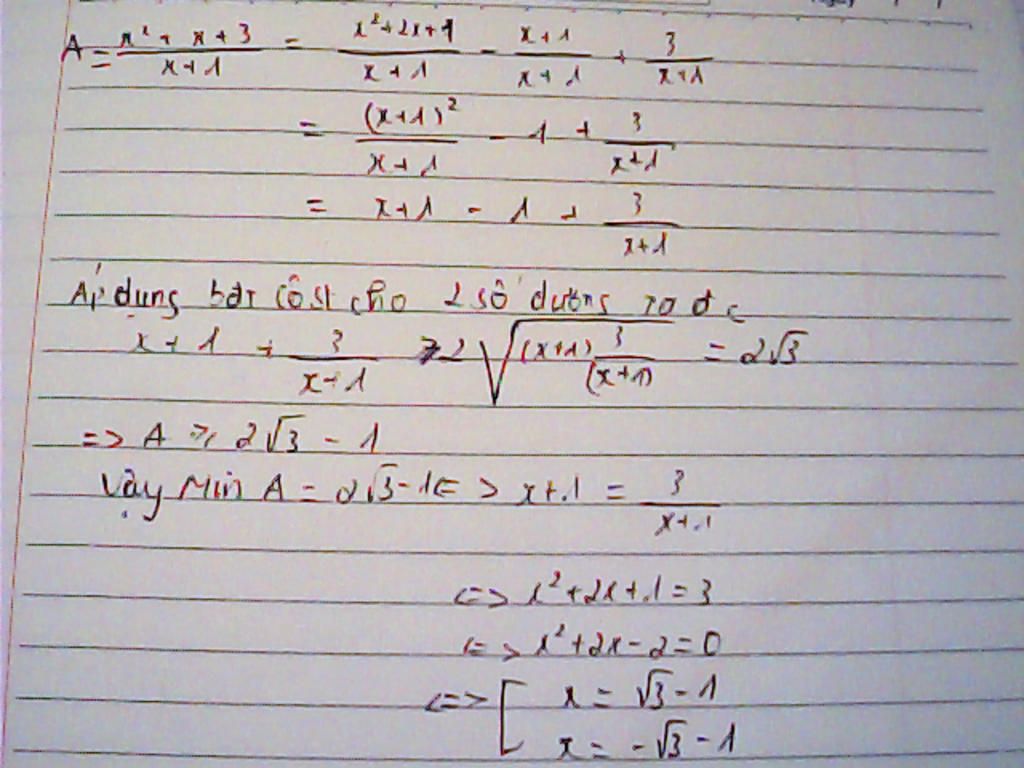 A = \frac{x^2 + x + 3}{x+1} = \frac{x^2+2x+1}{x+1} - \frac{x+1}{x+1} + \frac{3}{x+1}
= \frac{(x+1)^2}{x+1} - 1 + \frac{3}{x+1}
= x+1 - 1 + \frac{3}{x+1}
Áp dụng bđt côsi cho 2 số dương ta đc
x+1 + \frac{3}{x+1} ≥ 2\sqrt{(x+1)\frac{3}{(x+1)}} = 2\sqrt{3}
=> A ≥ 2\sqrt{3} - 1
Vậy Min A = 2\sqrt{3}-1 <=> x+1 = \frac{3}{x+1}
<=> x^2+2x+1 = 3
<=> x^2+2x-2=0
<=> [ x = \sqrt{3} - 1
x = -\sqrt{3} - 1